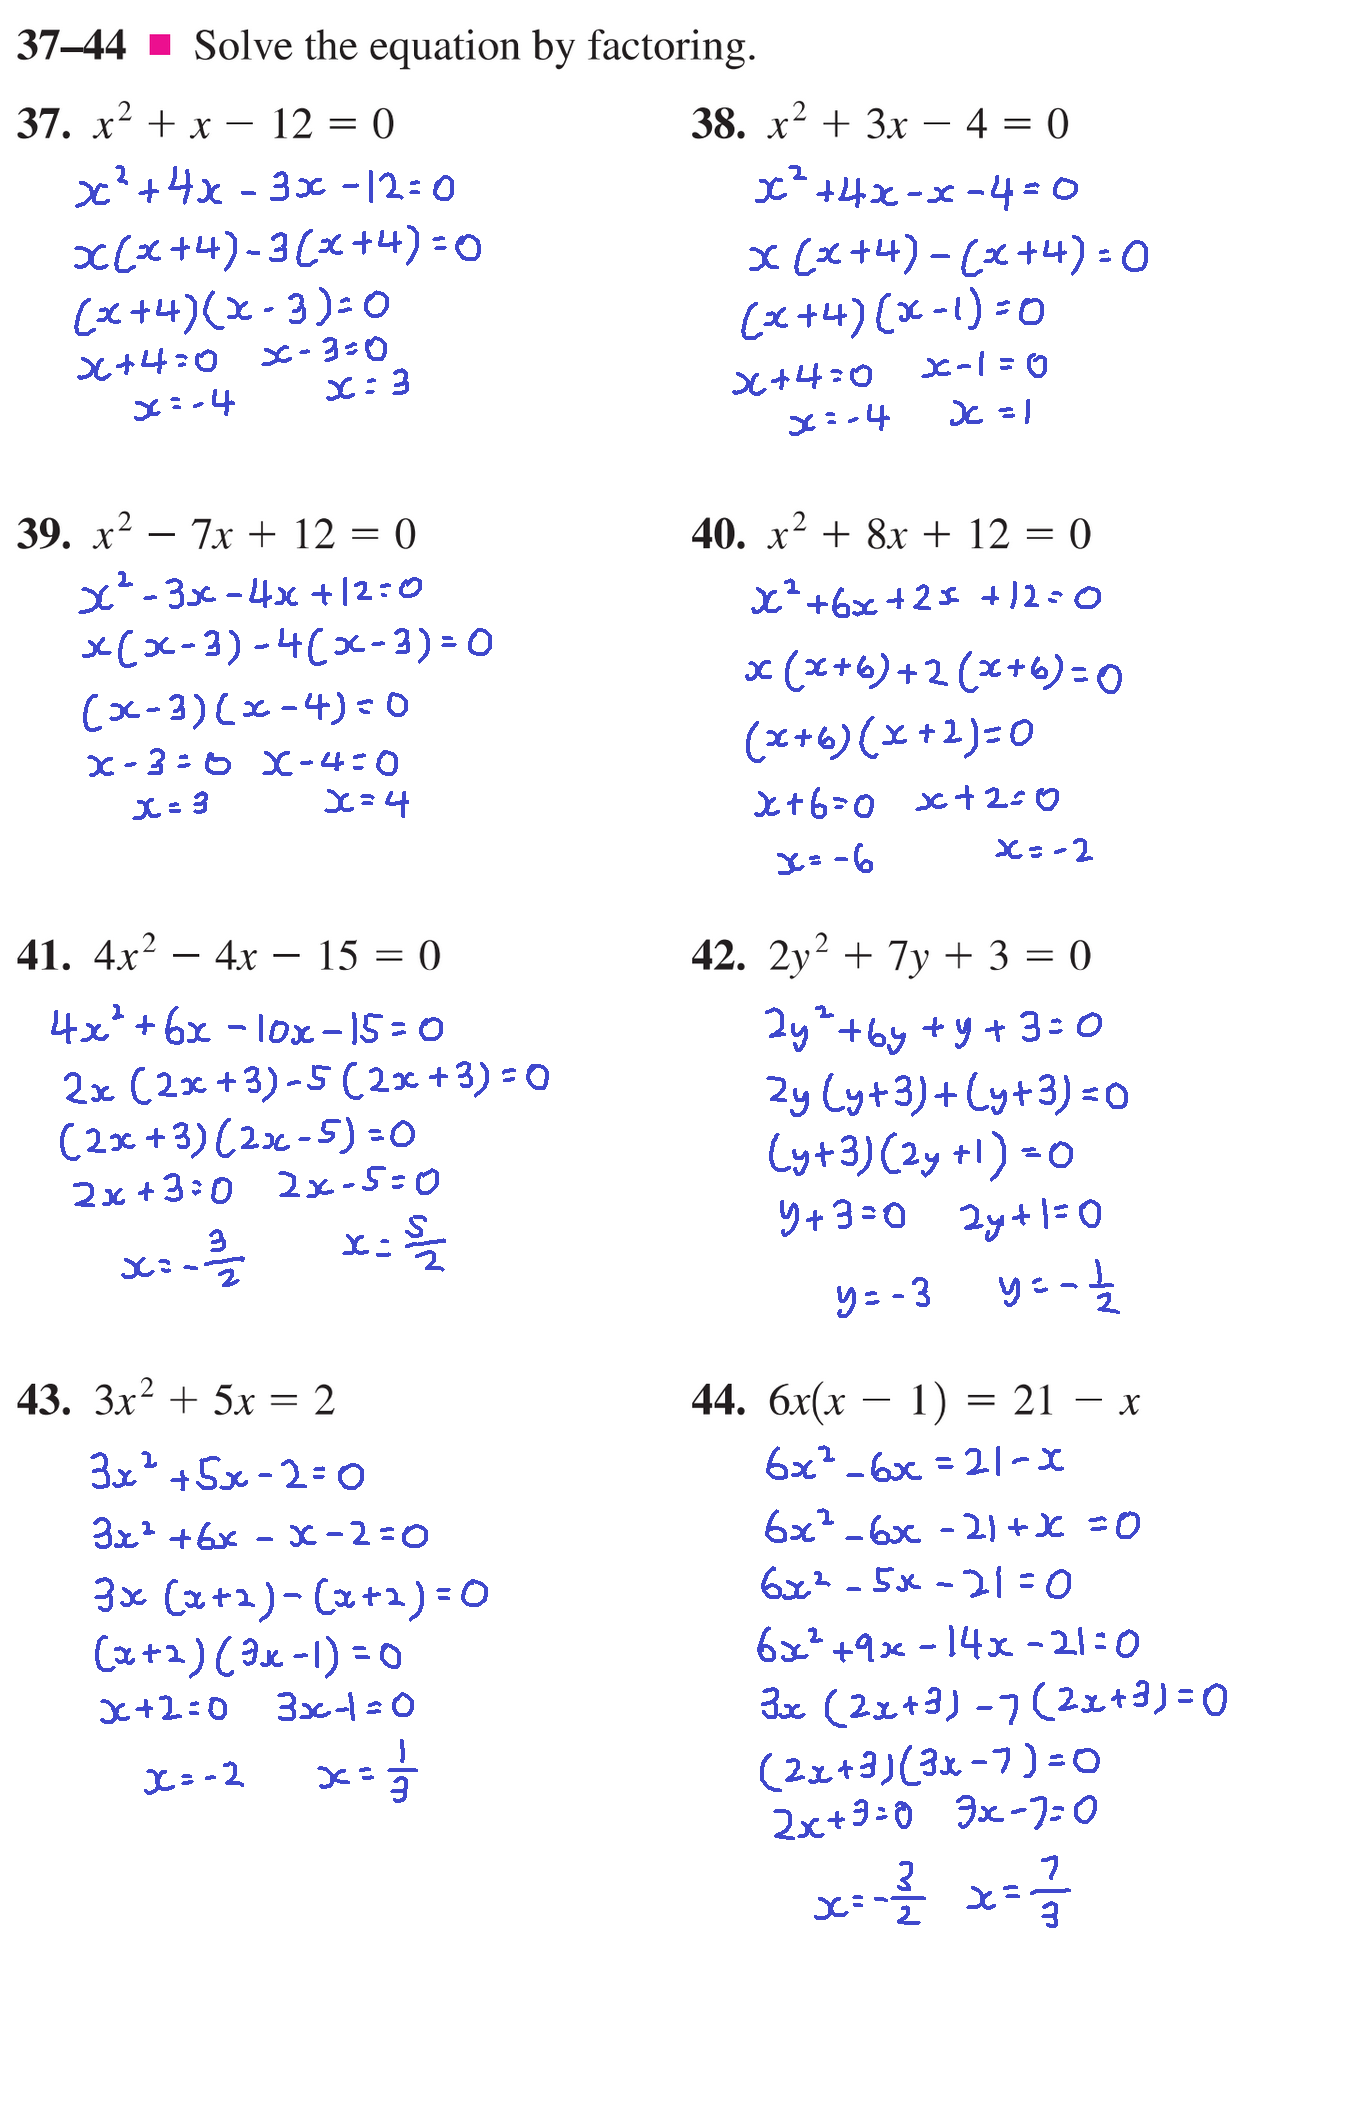 37–44 ■ Solve the equation by factoring.
37. x² + x − 12 = 0
x²+4x-3x-12=0
x(x+4)-3(x+4)=0
(x+4)(x-3)=0
x+4=0 x-3=0
x=-4 x=3
38. x² + 3x − 4 = 0
x²+4x-x-4=0
x(x+4)-(x+4)=0
(x+4)(x-1)=0
x+4=0 x-1=0
x=-4 x=1
39. x² − 7x + 12 = 0
x²-3x-4x+12=0
x(x-3)-4(x-3)=0
(x-3)(x-4)=0
x-3=0 x-4=0
x=3 x=4
40. x² + 8x + 12 = 0
x²+6x+2x+12=0
x(x+6)+2(x+6)=0
(x+6)(x+2)=0
x+6=0 x+2=0
x=-6 x=-2
41. 4x² − 4x − 15 = 0
4x²+6x-10x-15=0
2x(2x+3)-5(2x+3)=0
(2x+3)(2x-5)=0
2x+3=0 2x-5=0
x=-3/2 x=5/2
42. 2y² + 7y + 3 = 0
2y²+6y+y+3=0
2y(y+3)+(y+3)=0
(y+3)(2y+1)=0
y+3=0 2y+1=0
y=-3 y=-1/2
43. 3x² + 5x = 2
3x²+5x-2=0
3x²+6x-x-2=0
3x(x+2)-(x+2)=0
(x+2)(3x-1)=0
x+2=0 3x-1=0
x=-2 x=1/3
44. 6x(x − 1) = 21 − x
6x²-6x=21-x
6x²-6x-21+x=0
6x²-5x-21=0
6x²+9x-14x-21=0
3x(2x+3)-7(2x+3)=0
(2x+3)(3x-7)=0
2x+3=0 3x-7=0
x=-3/2 x=7/3